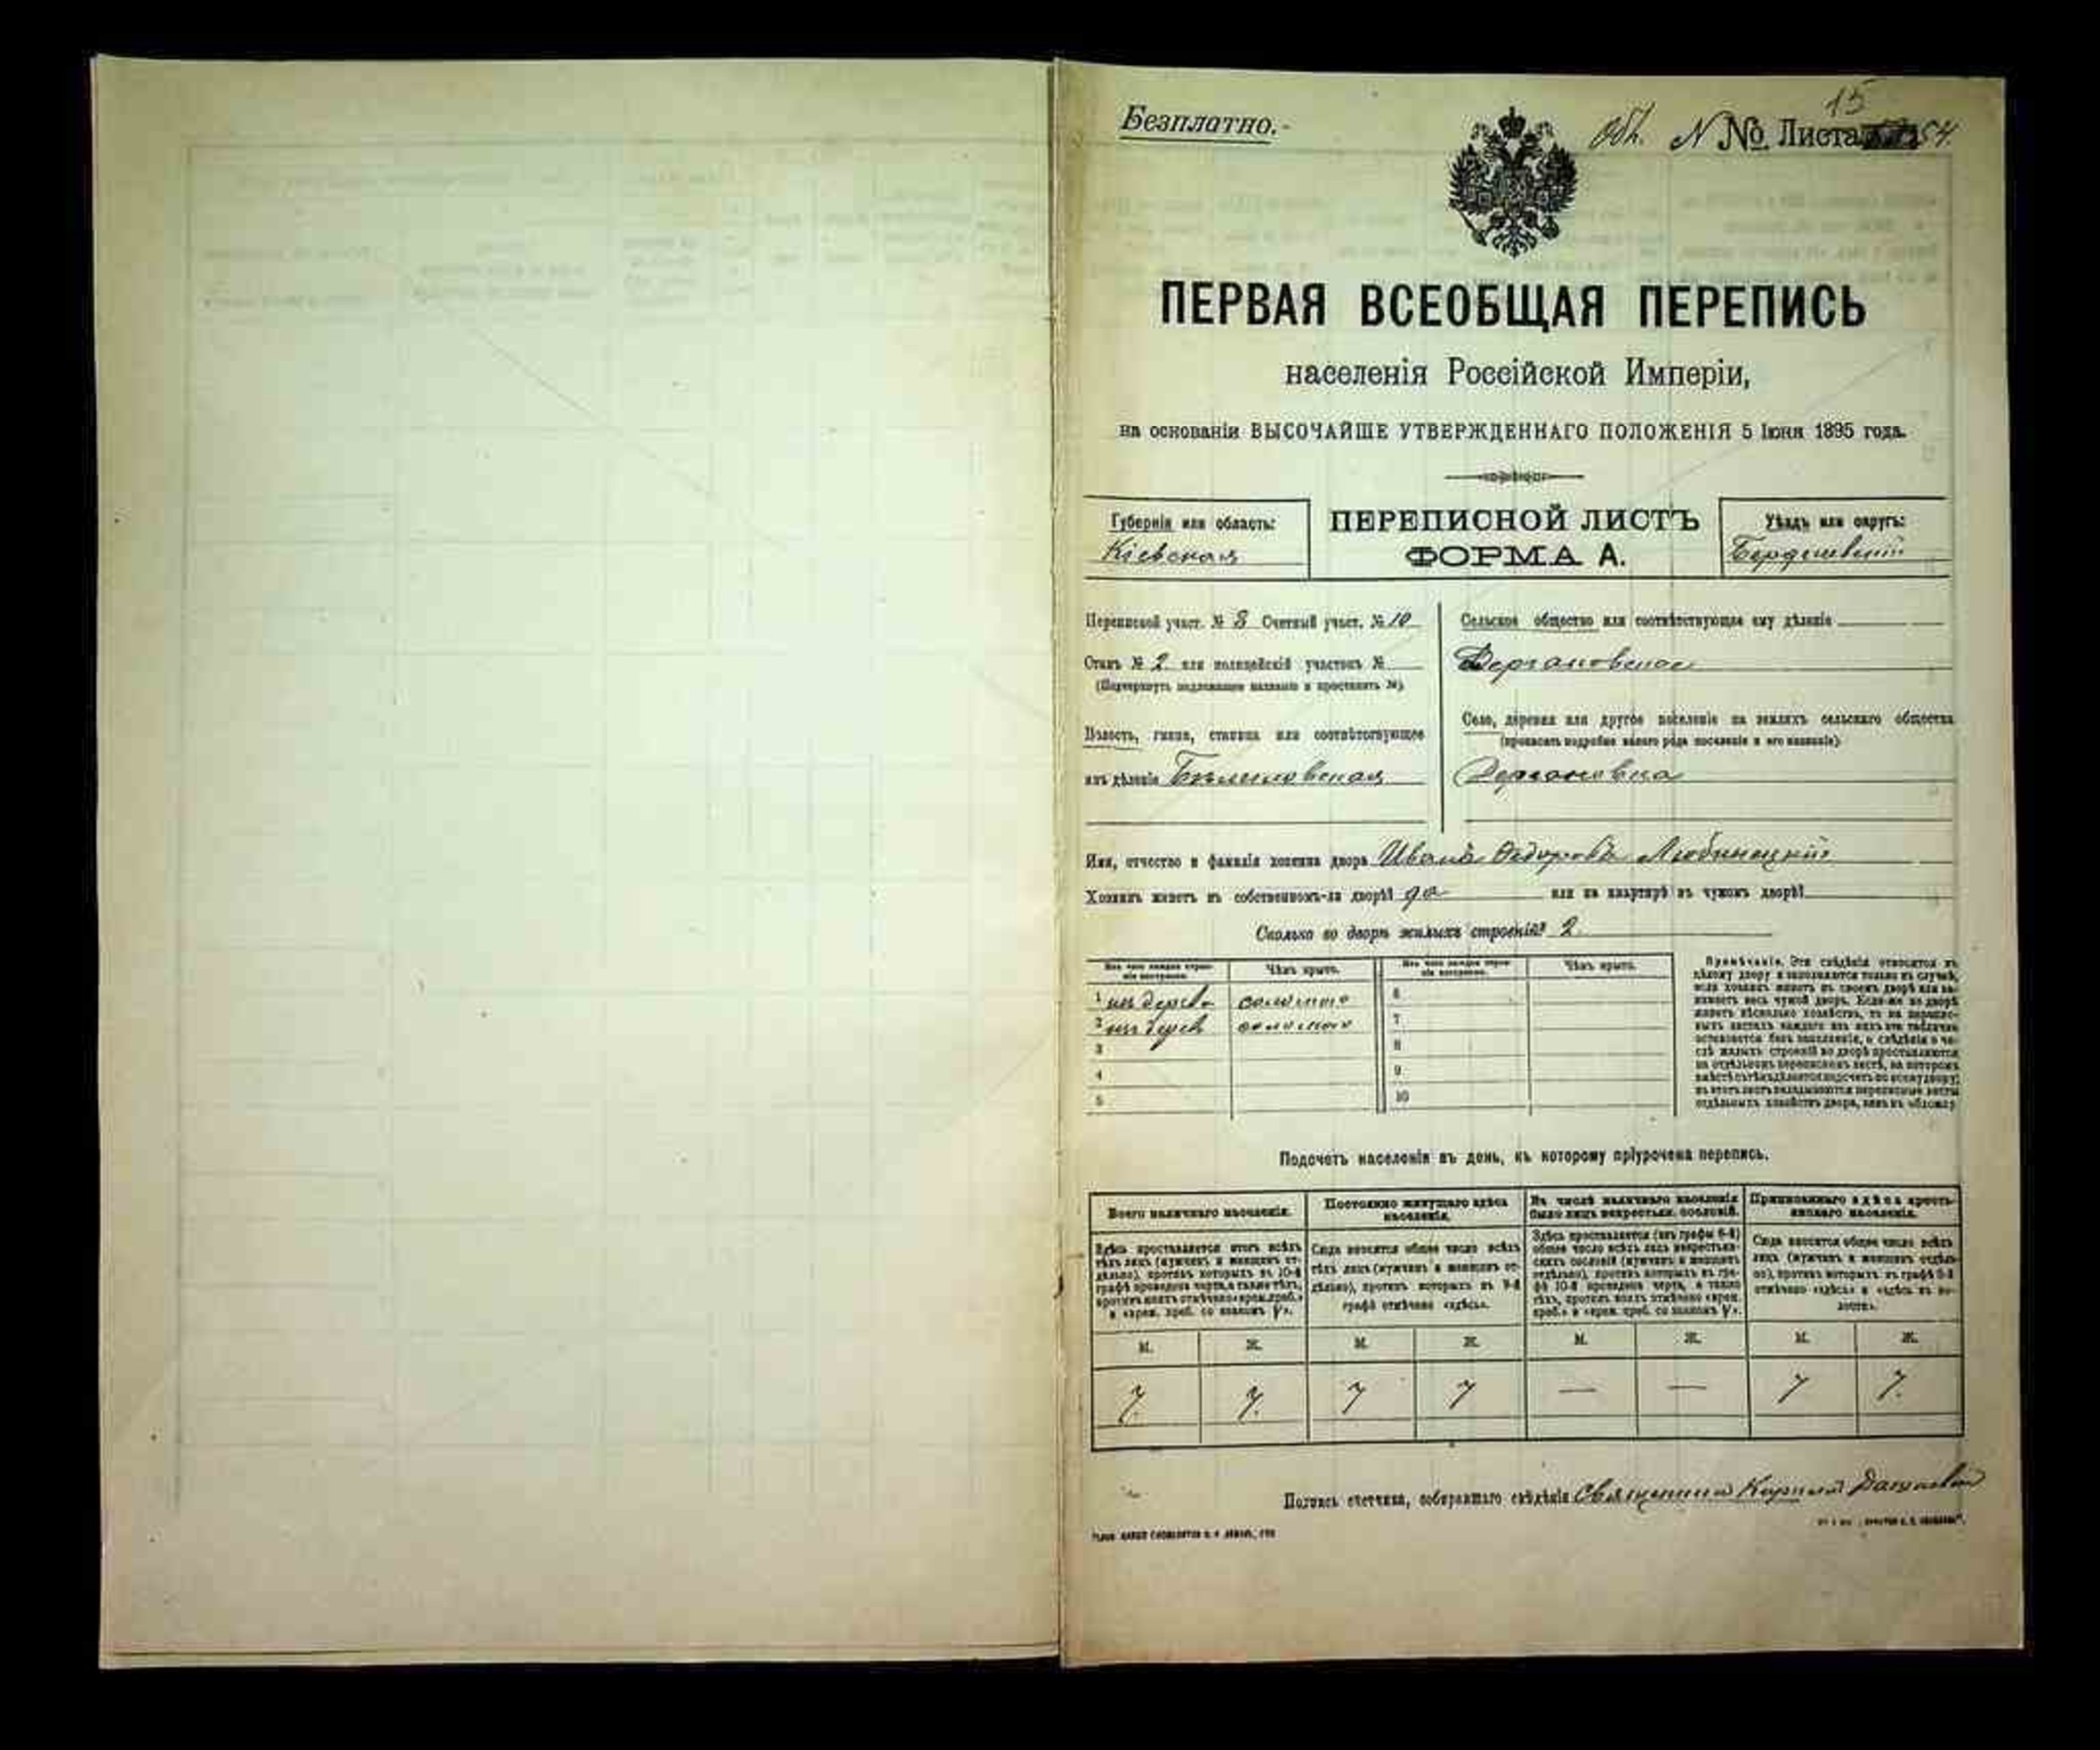 Безплатно.
15
№ Листа 54.
ПЕРВАЯ ВСЕОБЩАЯ ПЕРЕПИСЬ
населенія Россійской Имперіи,
на основаніи ВЫСОЧАЙШЕ УТВЕРЖДЕННАГО ПОЛОЖЕНІЯ 5 Іюня 1895 года.
Губернія или область:
Кіевская
ПЕРЕПИСНОЙ ЛИСТЪ
ФОРМА А.
Уѣздъ или округъ:
Бердичевскій
Переписной участ. № 3 Счетный участ. № 10
Станъ № 2 или полицейскій участокъ №
(Подчеркнуть надлежащее названіе и проставить №).
Волость, гмина, станица или соотвѣтствующее
имъ дѣленіе
Сельское общество или соотвѣтствующее ему дѣленіе
Село, деревня или другое поселеніе на земляхъ сельскаго общества
(прописать подробно какого рода поселеніе и его названіе).
Имя, отчество и фамилія хозяина двора Иванъ Федоровъ Любинецкій
Хозяинъ живетъ въ собственномъ-ли дворѣ? да или на квартирѣ въ чужомъ дворѣ?
Сколько во дворѣ жилыхъ строеній? 2
Изъ чего каждое строеніе построено. Чѣмъ крыто. Изъ чего каждое строеніе построено. Чѣмъ крыто.
1 изъ дерева соломою 6
2 изъ дерев соломою 7
3 8
4 9
5 10
Примѣчаніе. Эти свѣдѣнія относятся къ
цѣлому двору и заполняются только въ случаѣ,
если хозяинъ живетъ въ своемъ дворѣ или за-
нимаетъ весь чужой дворъ. Если-же во дворѣ
живетъ нѣсколько хозяйствъ, то на перепис-
ныхъ листахъ каждаго изъ нихъ эта табличка
оставляется безъ заполненія, а свѣдѣнія о чи-
слѣ жилыхъ строеній во дворѣ проставляются
на отдѣльномъ переписномъ листѣ, на которомъ
вмѣстѣ съ тѣмъ дѣлается подсчетъ по всему двору;
въ этотъ листъ вкладываются переписные листы
отдѣльныхъ хозяйствъ двора, какъ въ обложку
Подсчетъ населенія въ день, къ которому пріурочена перепись.
Всего наличнаго населенія.
Постоянно живущаго здѣсь населенія.
Въ числѣ наличнаго населенія было лицъ некрестьян. сословій.
Приписаннаго здѣсь крестьянскаго населенія.
Здѣсь проставляется итогъ всѣхъ
тѣхъ лицъ (мужчинъ и женщинъ от-
дѣльно), противъ которыхъ въ 10-й
графѣ проведена черта, а также тѣхъ,
противъ коихъ отмѣчено «врем. преб.»
и «врем. преб. со знакомъ V».
Сюда вносится общее число всѣхъ
тѣхъ лицъ (мужчинъ и женщинъ от-
дѣльно), противъ которыхъ въ 9-й
графѣ отмѣчено «здѣсь».
Здѣсь проставляется (изъ графы 6-й)
общее число всѣхъ лицъ некрестьян-
скихъ сословій (мужчинъ и женщинъ
отдѣльно), противъ которыхъ въ гра-
фѣ 10-й проведена черта, а также
тѣхъ, противъ коихъ отмѣчено «врем.
преб.» и «врем. преб. со знакомъ V».
Сюда вносится общее число всѣхъ
лицъ (мужчинъ и женщинъ отдѣль-
но), противъ которыхъ въ графѣ 8-й
отмѣчено «здѣсь» и «здѣсь въ во-
лости».
М. Ж. М. Ж. М. Ж. М. Ж.
7. 7. 7 7 — — 7 7.
Подпись счетчика, собиравшаго свѣдѣнія Священникъ